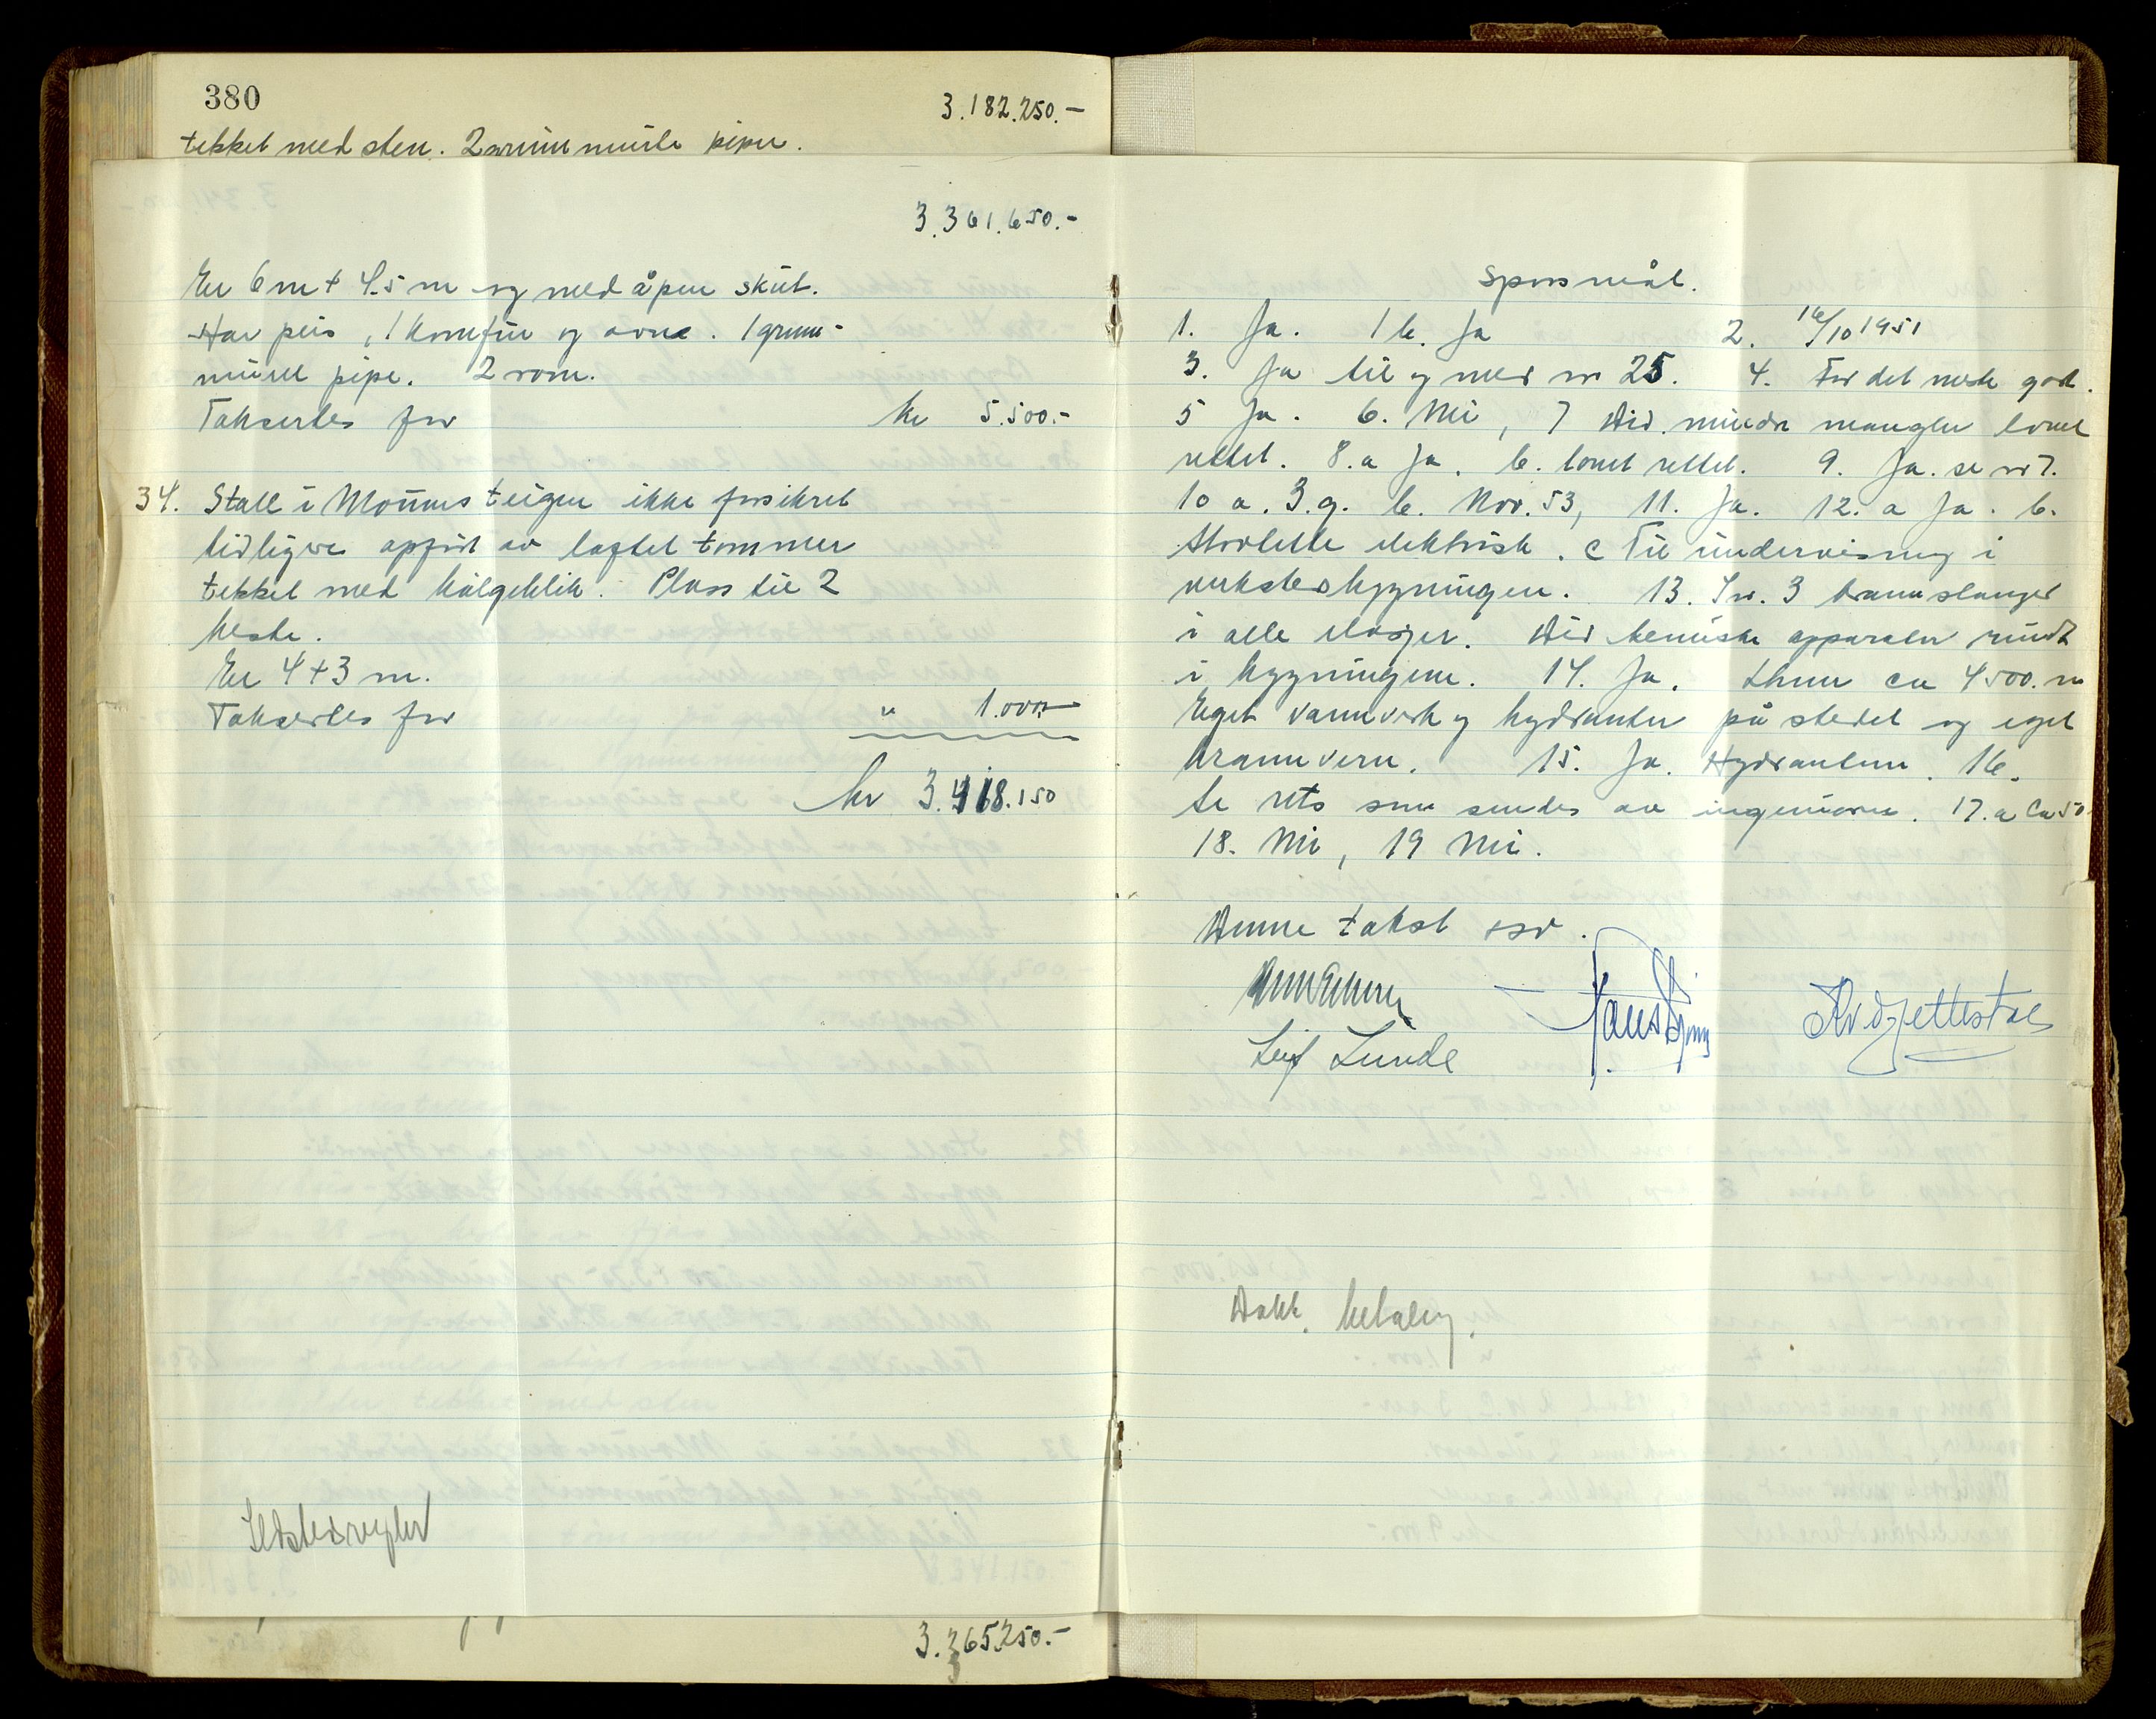 380
3.182.250.-
tekket med sten. 2 grunnmurte piper.
3.361.650.-
Er 6 m + 4.5 m og med åpen skut.
Har peis, 1 komfur og ovne. 1 grunn-
muret pipe. 2 rom.
Takseres for kr 5.500.-
34. Stall i Mounsteigen ikke forsikret
tidligere oppført av laftet tømmer
tekket med bølgeblik. Plass til 2
heste.
Er 4 + 3 m.
Takseres for " 1.000.-
kr 3.418.150
Ildstedsregler
3.365.250.-
3
Spørsmål.
1. Ja. 1 b. Ja 2. 16/10 1951
3. Ja til og med nr 25. 4. For det meste godt.
5 Ja. 6. Nei, 7 Div. mindre mangler lovet
rettet. 8.a Ja. b. lovet rettet. 9. Ja. se nr 7.
10 a. 3.g. b. Nov. 53, 11. Ja. 12. a Ja. b.
elektrisk. c Til undervisning i
verkstedbygningen. 13. Inv. 3 brannslanger
i alle etasjer. Div kemiske apparater rundt
i bygningene. 14. Ja. ca 4500. m
Eget vannverk og hydranter på stedet og eget
brannvern. 15. Ja. Hydrantene. 16.
Se som sendes av ingeniøren. 17. a Ca 50
18. Nei, 19 Nei.
Denne takst osv.
Leif Lunde
Dobb. betaling.